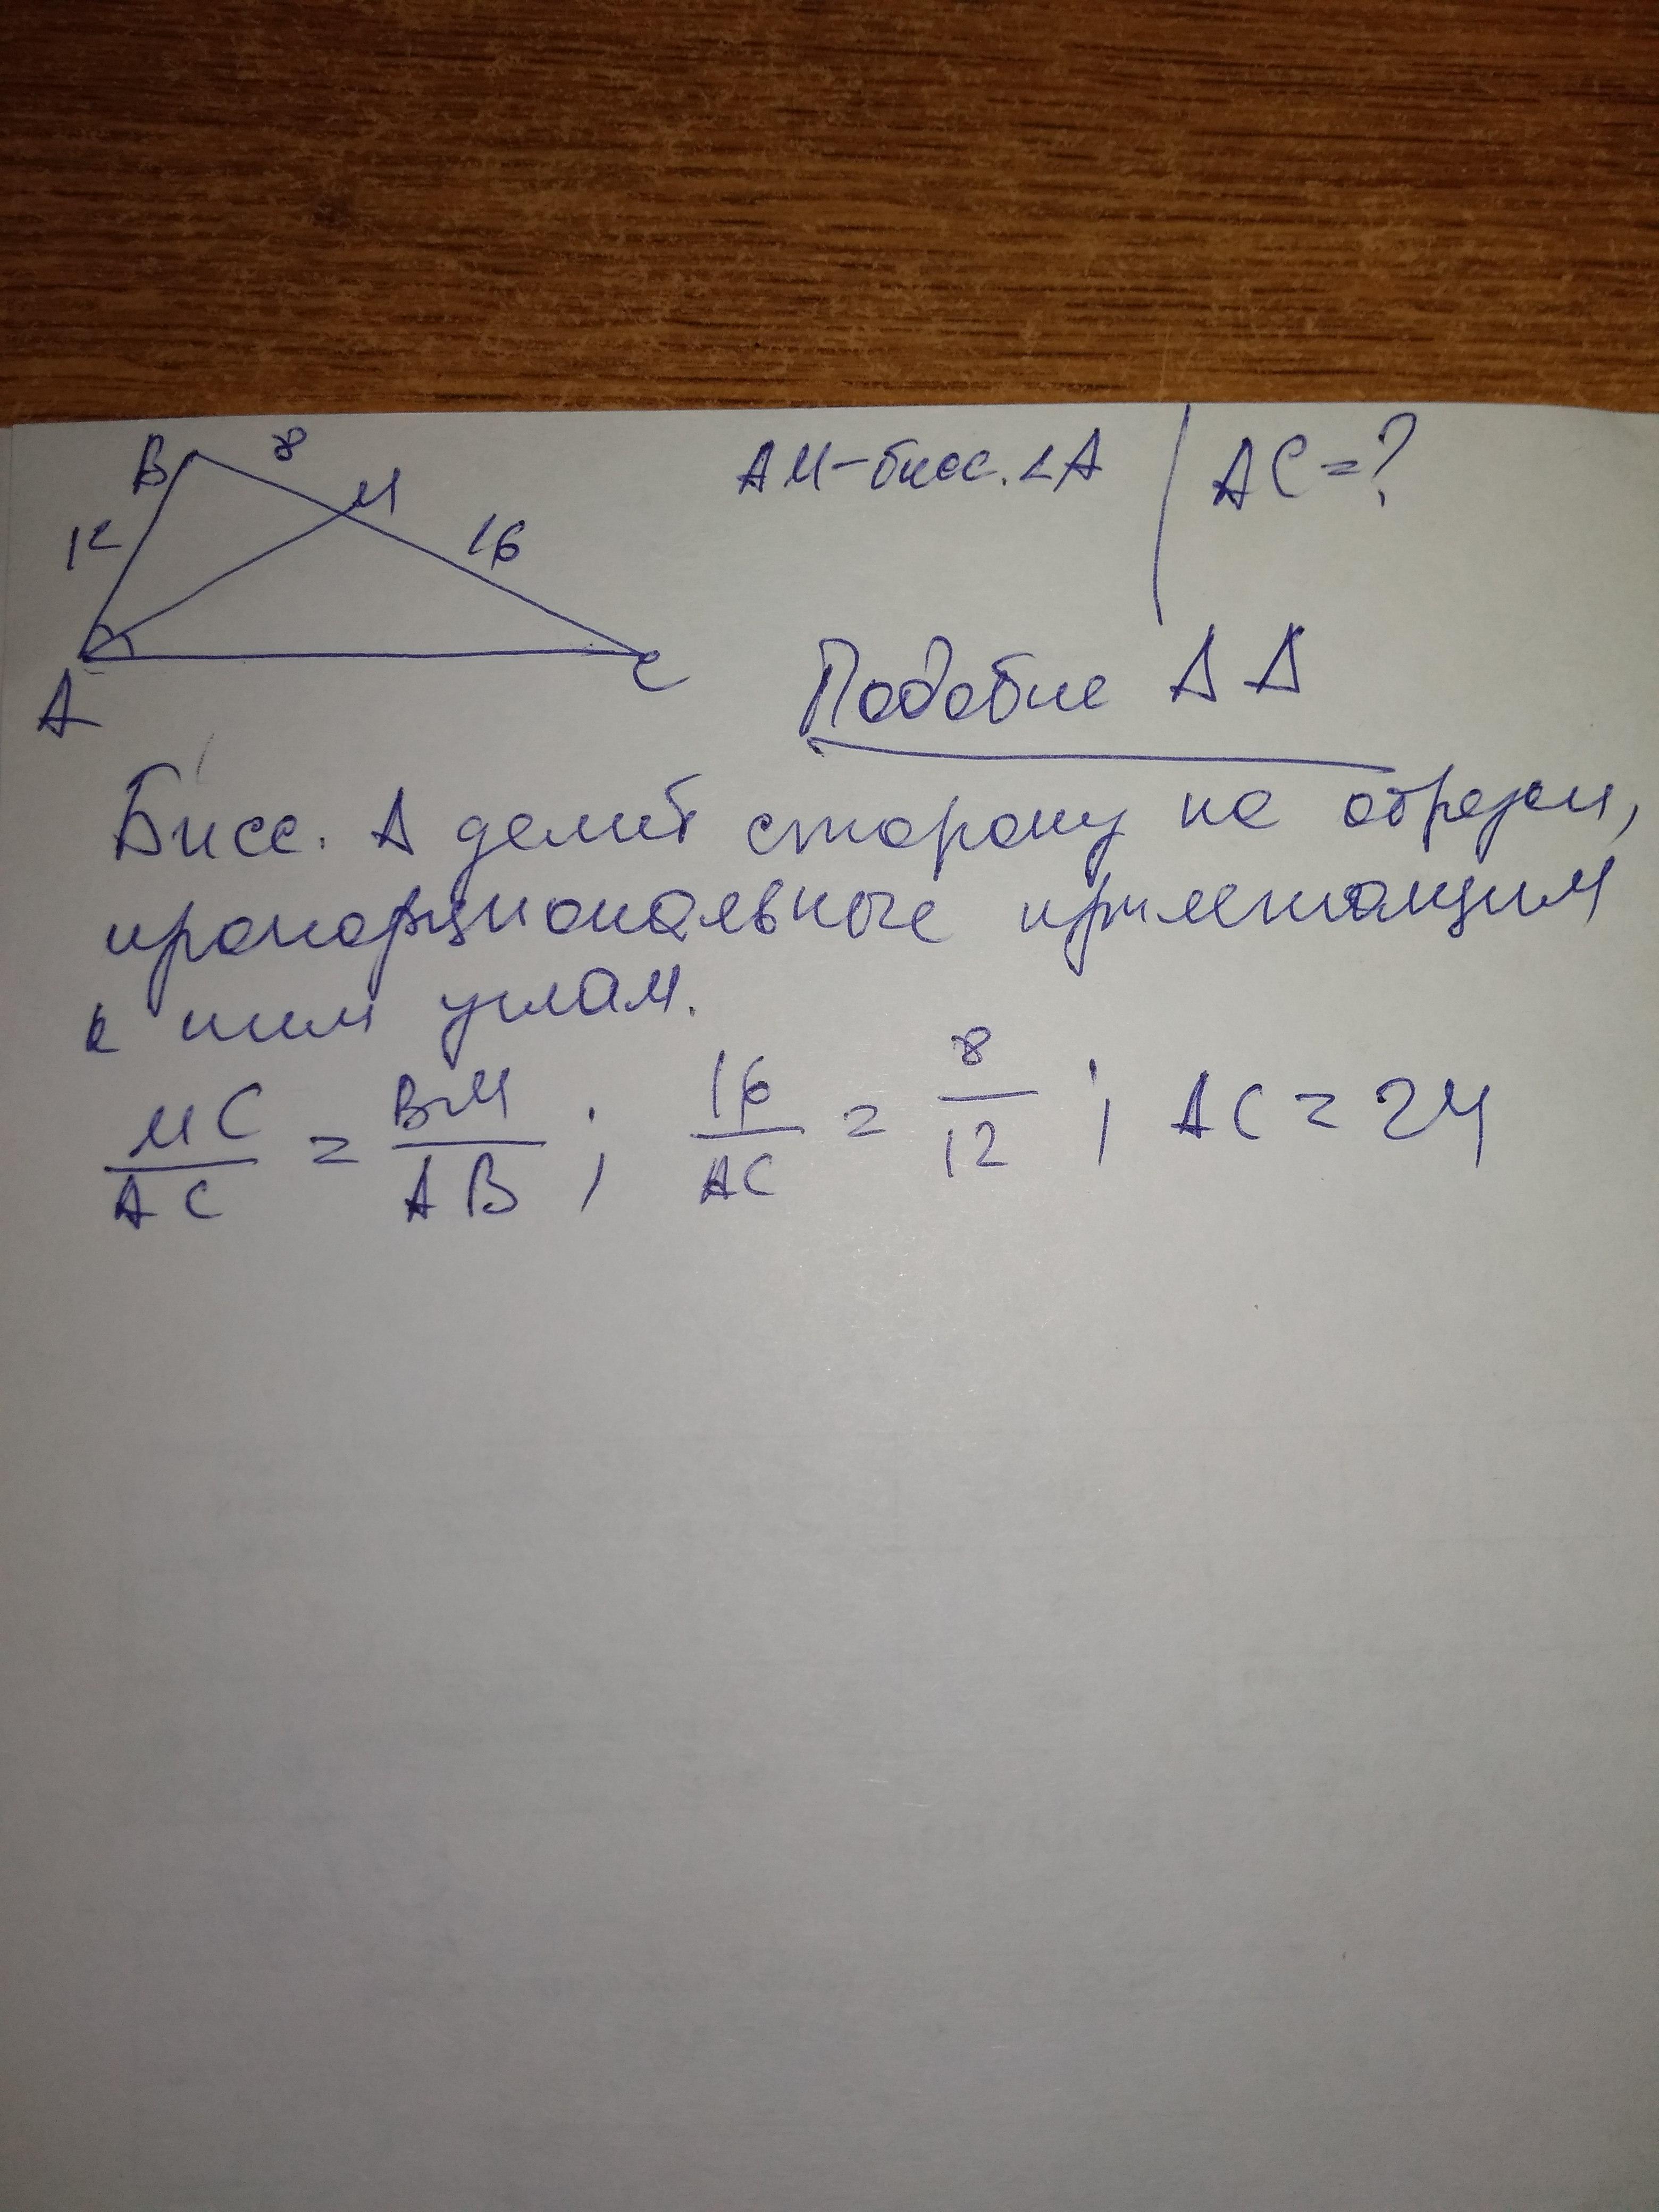 B 8 M
12 16
A C
AM-бисс. ∠A | AC=?
Подобие ΔΔ
Бисс. Δ делит сторону на отрезки,
пропорциональные прилежащим
к ним углам.
MC/AC = BM/AB ; 16/AC = 8/12 ; AC = 24